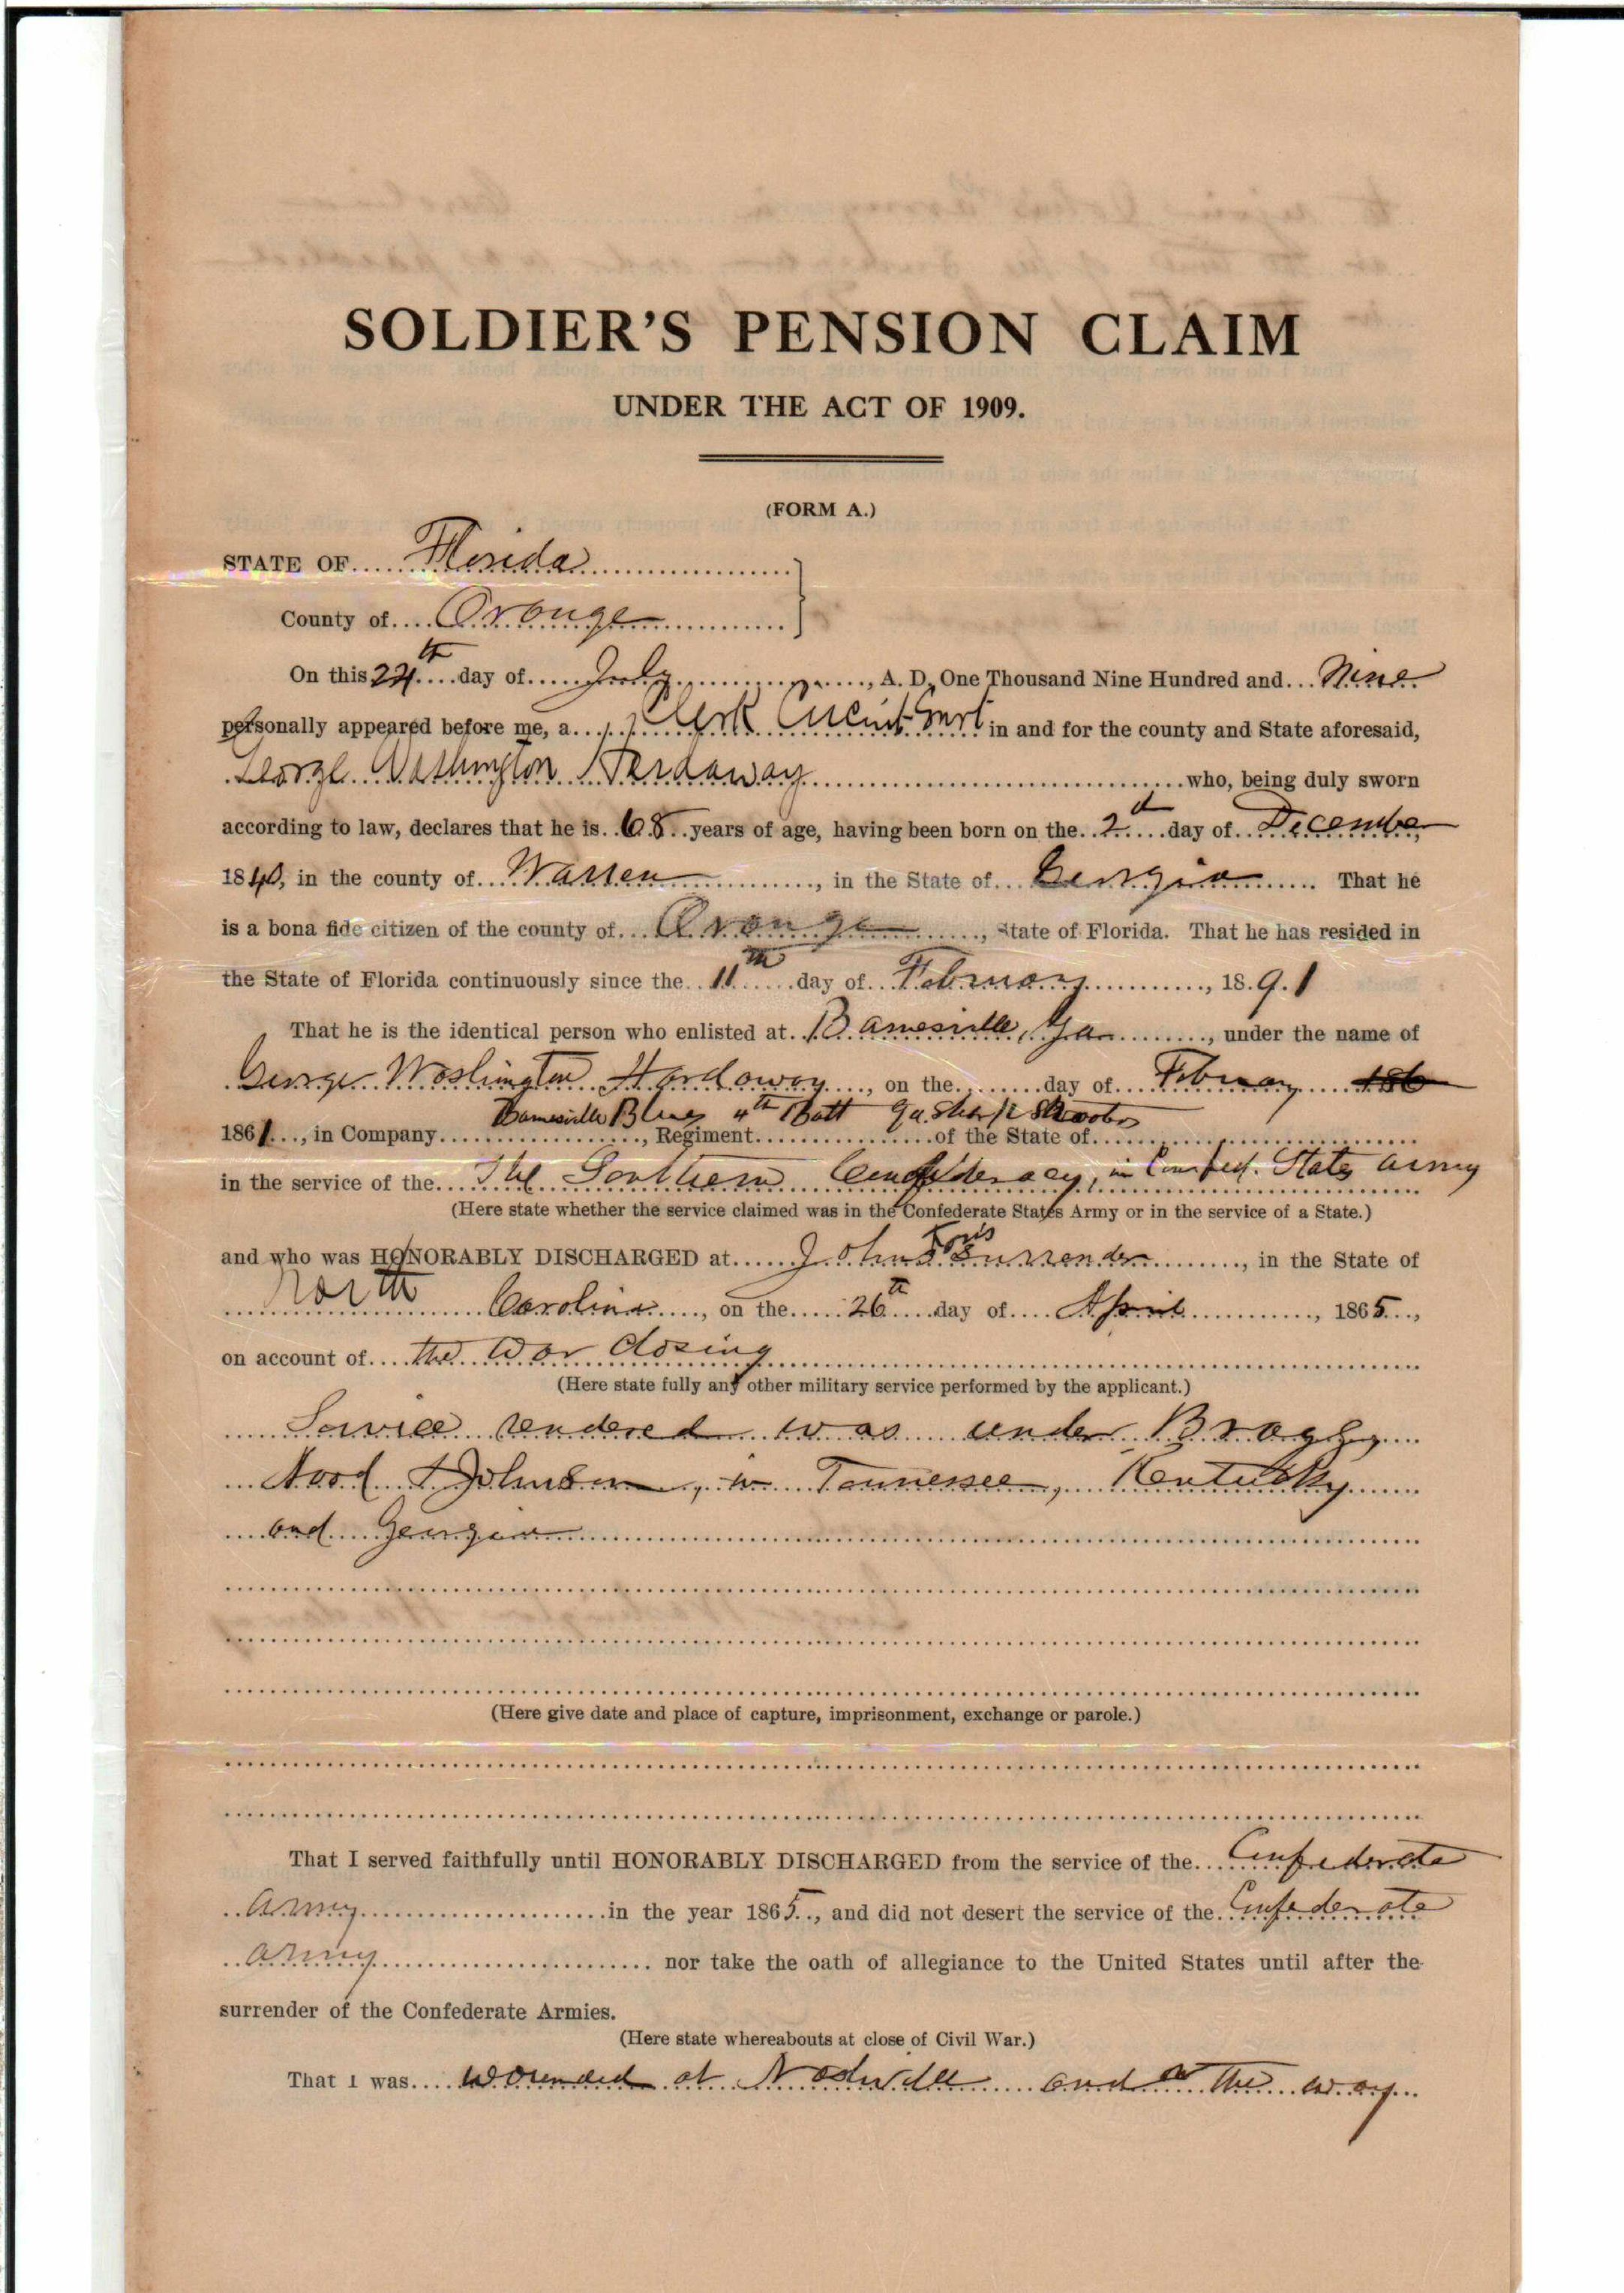 SOLDIER'S PENSION CLAIM
UNDER THE ACT OF 1909.
(FORM A.)
STATE OF Florida
County of Orange
On this 24th day of July, A. D., One Thousand Nine Hundred and Nine
personally appeared before me, a Clerk Circuit Court in and for the county and State aforesaid,
George Washington Hardaway who, being duly sworn
according to law, declares that he is 68 years of age, having been born on the 2d day of December
1840, in the county of Warren, in the State of Georgia. That he
is a bona fide citizen of the county of Orange, State of Florida. That he has resided in
the State of Florida continuously since the 11th day of February, 1891
That he is the identical person who enlisted at Barnesville, Ga, under the name of
George Washington Hardaway, on the day of February 186
Barnesville Blues 4th Batt Ga. Sharp Shooters
1861, in Company, Regiment of the State of
in the service of the The Southern Confederacy, in Confed. States army
(Here state whether the service claimed was in the Confederate States Army or in the service of a State.)
and who was HONORABLY DISCHARGED at Johnston's Surrender, in the State of
North Carolina, on the 26th day of April, 1865,
on account of the war closing
(Here state fully any other military service performed by the applicant.)
Service rendered was under Bragg,
Hood & Johnson, in Tennessee, Kentucky
and Georgia
(Here give date and place of capture, imprisonment, exchange or parole.)
That I served faithfully until HONORABLY DISCHARGED from the service of the Confederate
army in the year 1865, and did not desert the service of the Confederate
army nor take the oath of allegiance to the United States until after the
surrender of the Confederate Armies.
(Here state whereabouts at close of Civil War.)
That I was wounded at Nashville and on the way